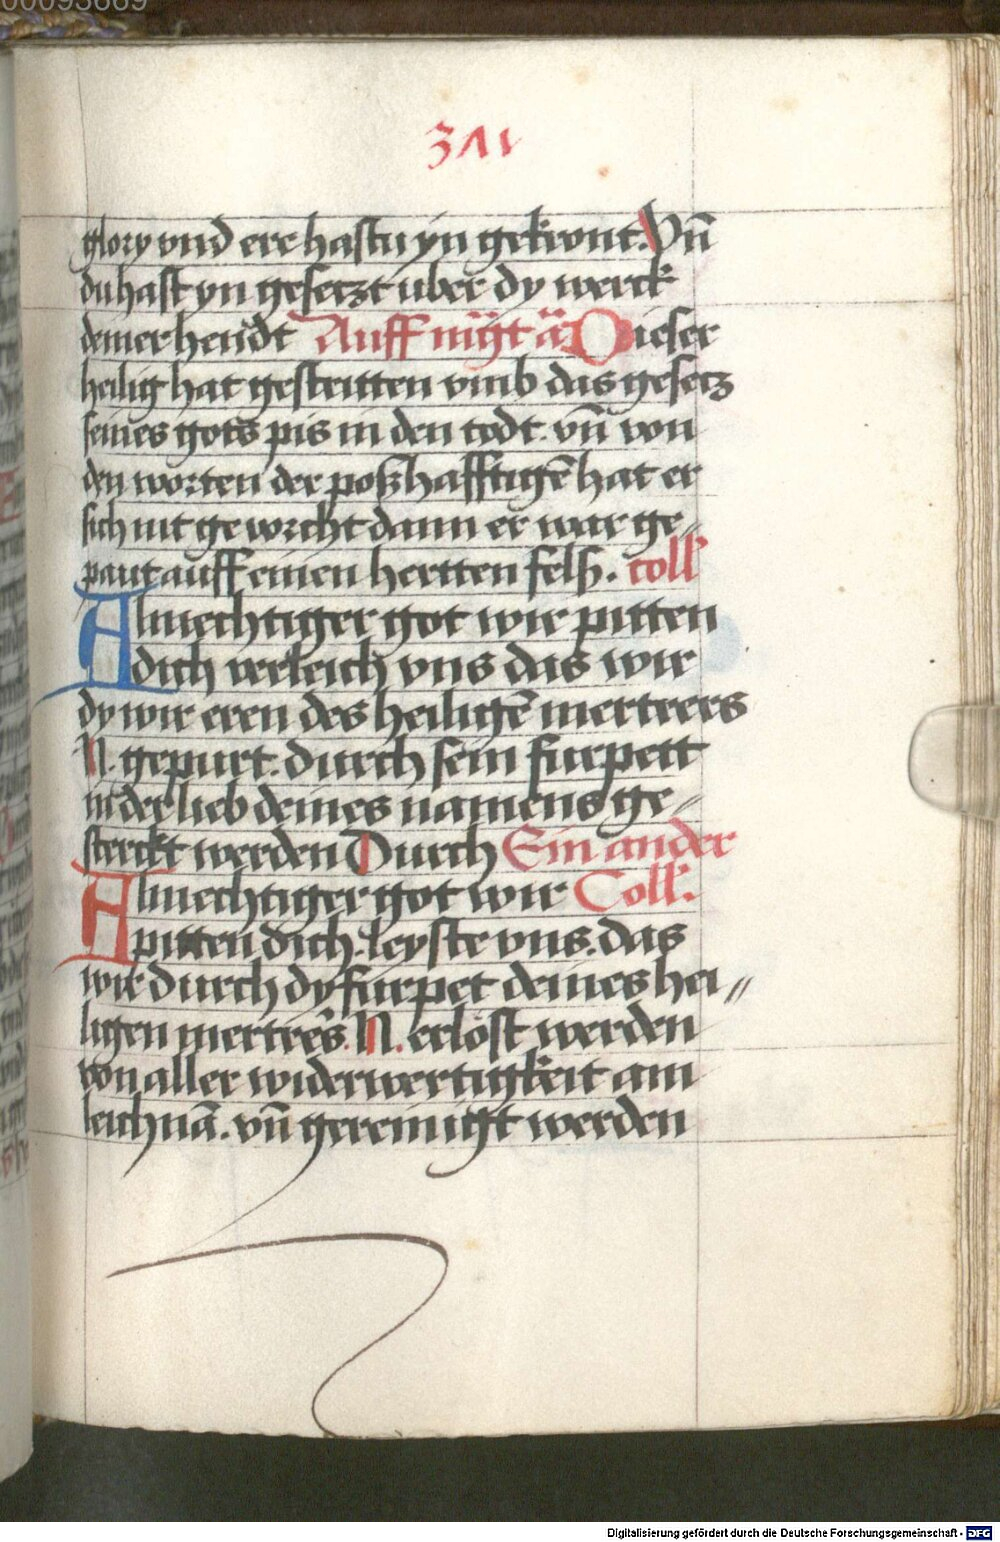 00093669
371
glory vnd ere hastu yn gekront. Vn̄
du hast yn geseczt uber dy werck
deiner hendt Auff mg̈t ä Dieser
heilig hat gestritten vmb das gesecz
seines gots pis in den todt. vn̄ von
den worten der poßhafftigē hat er
sich nit geworcht dann er war ge〃
paut auff einen hertten felß. coll'
Almechtiger got wir pitten
dich verleich vns das wir
dy wir eren des heiligē mertrers
N. gepurt. durch sein furpett
in der lieb deines namens ge〃
sterckt werden Durch Ein ander
Almechtiger got wir Coll'.
pitten dich. leyste vns. das
wir durch dy furpet deines hei〃
ligen mertrers. N. erlost werden
von aller widerwertigkeit am
leichnā. vn̄ gereinigt werden
Digitalisierung gefördert durch die Deutsche Forschungsgemeinschaft - DFG